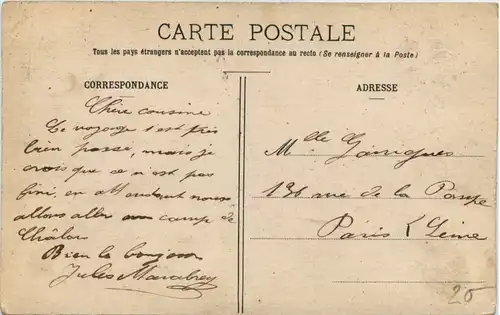 CARTE POSTALE
Tous les pays étrangers n'acceptent pas la correspondance au recto (Se renseigner à la Poste)
CORRESPONDANCE
Chère cousine
Le voyage s'est très
bien passé, mais je
crois que ce n'est pas
fini, en attendant nous
allons aller au camp de
Châlon
Bien le bonjour
Jules
ADRESSE
Mlle
136 rue de la Pompe
Paris Seine
20